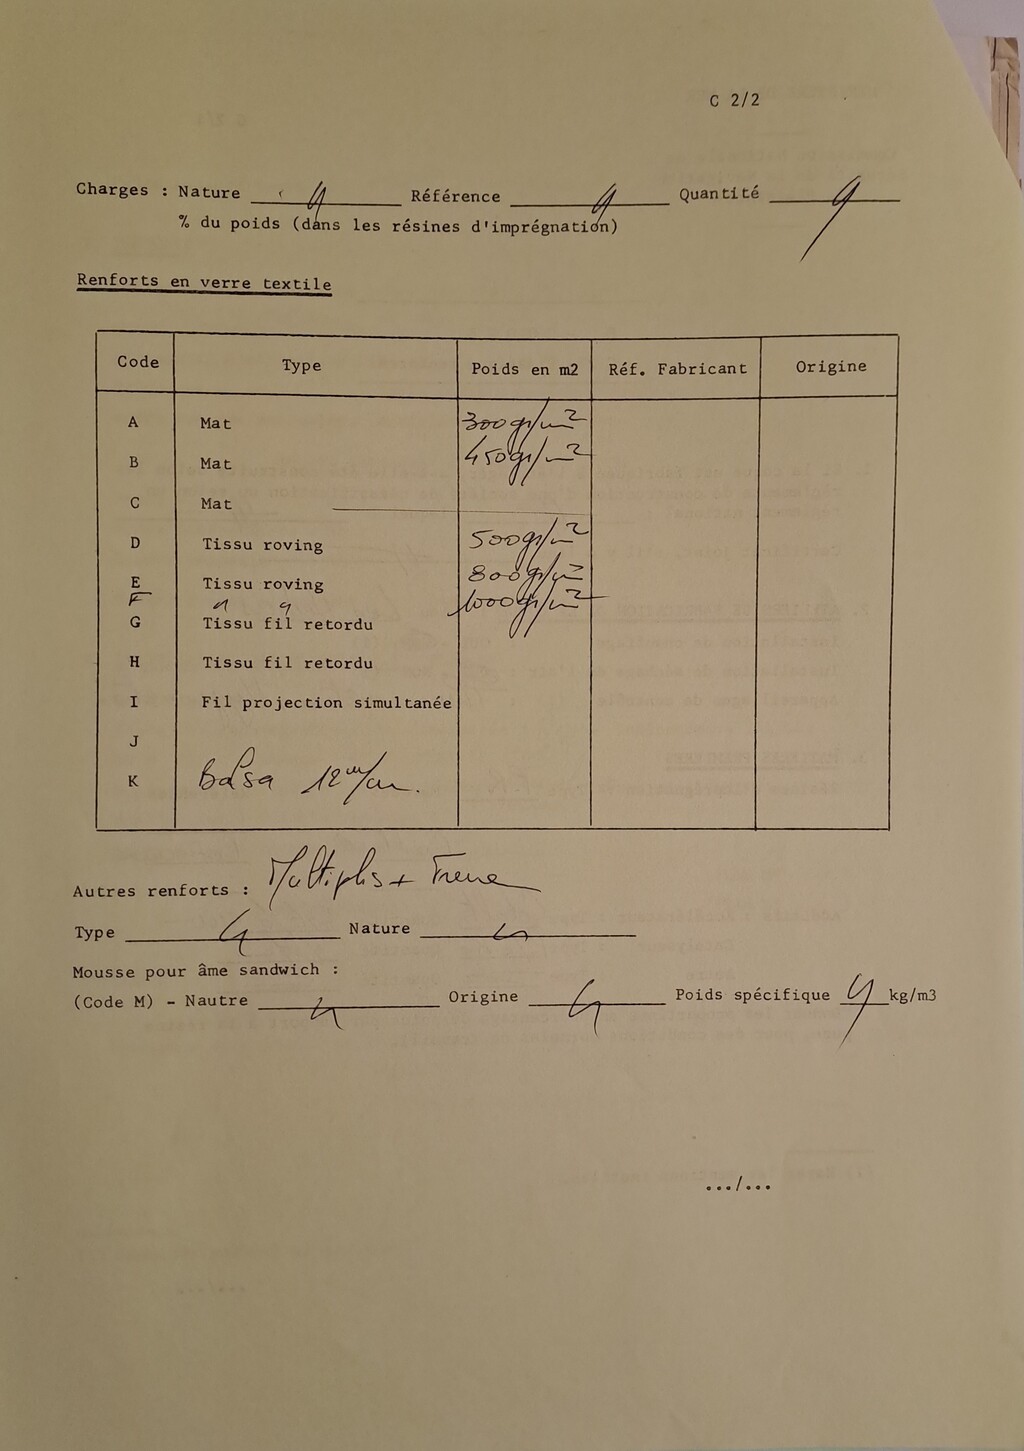 C 2/2
Charges : Nature Référence Quantité
% du poids (dans les résines d'imprégnation)
Renforts en verre textile
Code Type Poids en m2 Réf. Fabricant Origine
A Mat 300gr/m2
B Mat 450gr/m2
C Mat
D Tissu roving 500gr/m2
E Tissu roving 800gr/m2
F 1000gr/m2
G Tissu fil retordu
H Tissu fil retordu
I Fil projection simultanée
J
K Balsa 12 m/m.
Autres renforts : Multiplis + Frene
Type Nature
Mousse pour âme sandwich :
(Code M) - Nautre Origine Poids spécifique kg/m3
.../...